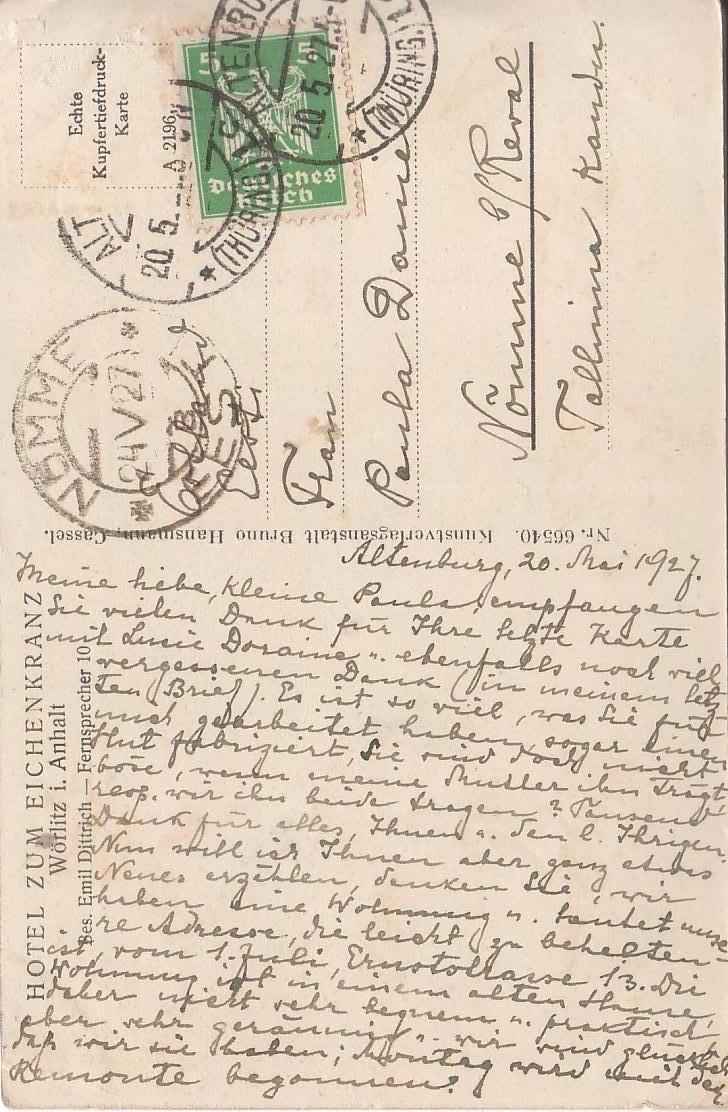 Echte
Kupfertiefdruck-
Karte
A 2196
5 5
Deutsches
Reich
ALTENBURG
20.5.27.
★ (THÜRING.)
ALT
20.5.
★ (THÜRING.)
NÕMME
24 V 27
EESTI
Eesti
Frau
Paula Domie
Nõmme b/Reval
Tallinna
Nr. 66540. Kunstverlagsanstalt Bruno Hansmann, Cassel.
HOTEL ZUM EICHENKRANZ
Wörlitz i. Anhalt
Bes. Emil Dittrich — Fernsprecher 10
Altenburg, 20. Mai 1927.
Meine liebe, kleine Paula, empfangen
Sie vielen Dank für Ihre letzte Karte
mit Lucie Doraine u. ebenfalls noch viel
vergessenen Dank (in meinem letz-
ten Brief). Es ist so viel, was Sie für
mich gearbeitet haben, sogar einen
Hut fabriziert, Sie sind doch nicht
böse, wenn meine Mutter ihn trägt
resp. wir ihn beide tragen? Tausend
Dank für alles, Ihnen u. den l. Ihrigen.
Nun will ich Ihnen aber ganz etwas
Neues erzählen, denken Sie, wir
haben eine Wohnung u. lautet unse-
re Adresse, die leicht zu behalten
ist, vom 1. Juli, Ernststrasse 13. Die
Wohnung ist in einem alten Hause,
daher nicht sehr bequem u. praktisch
aber sehr geräumig u. wir sind glücklich
daß wir sie haben; Montag wird mit der
Remonte begonnen.